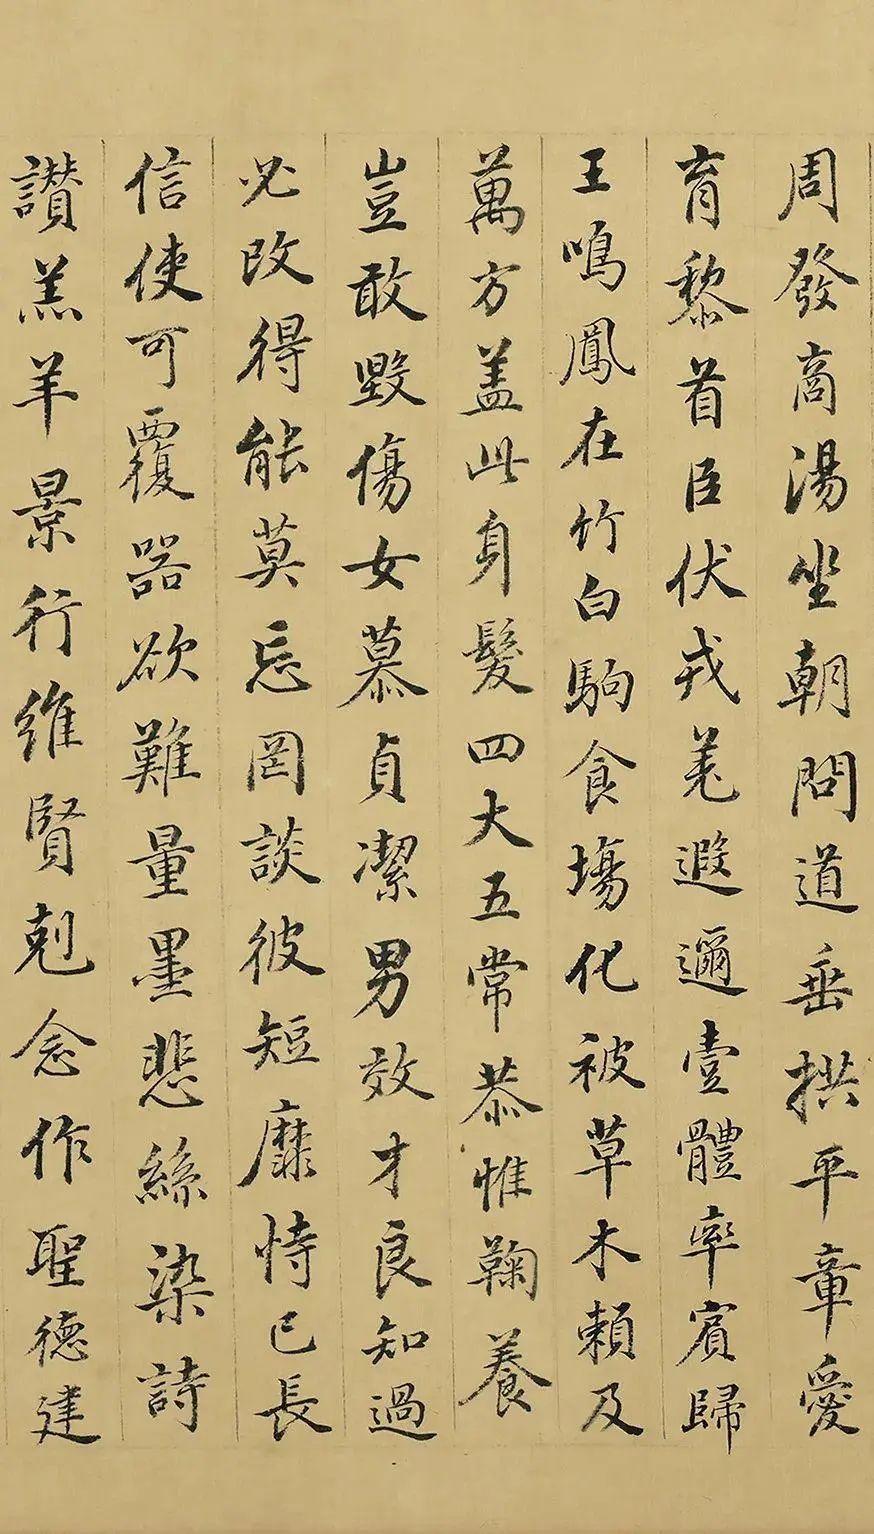 周發商湯坐朝問道垂拱平章愛
育黎首臣伏戎羌遐邇壹體率賓歸
王鳴鳳在竹白駒食場化被草木賴及
萬方蓋此身髮四大五常恭惟鞠養
豈敢毀傷女慕貞潔男效才良知過
必改得能莫忘罔談彼短靡恃己長
信使可覆器欲難量墨悲絲染詩
讚羔羊景行維賢剋念作聖德建